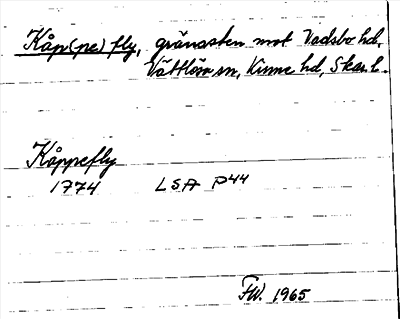 Kåp(pe)fly, gränssten mot Vadsbo hd,
Vättlösa sn, Kinne hd, Skar. l.
Kåppefly
1774 LSA P44
FW. 1965